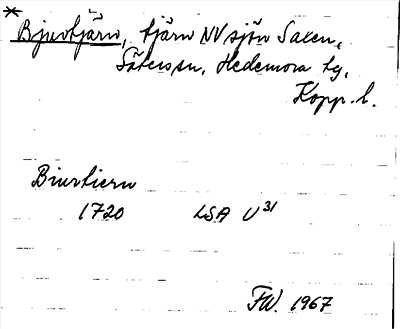 * Bjurtjärn, tjärn NV sjön Saxen,
Säters sn, Hedemora tg,
Kopp. l.
Biurtiern
1720 LSA U 31
FW. 1967